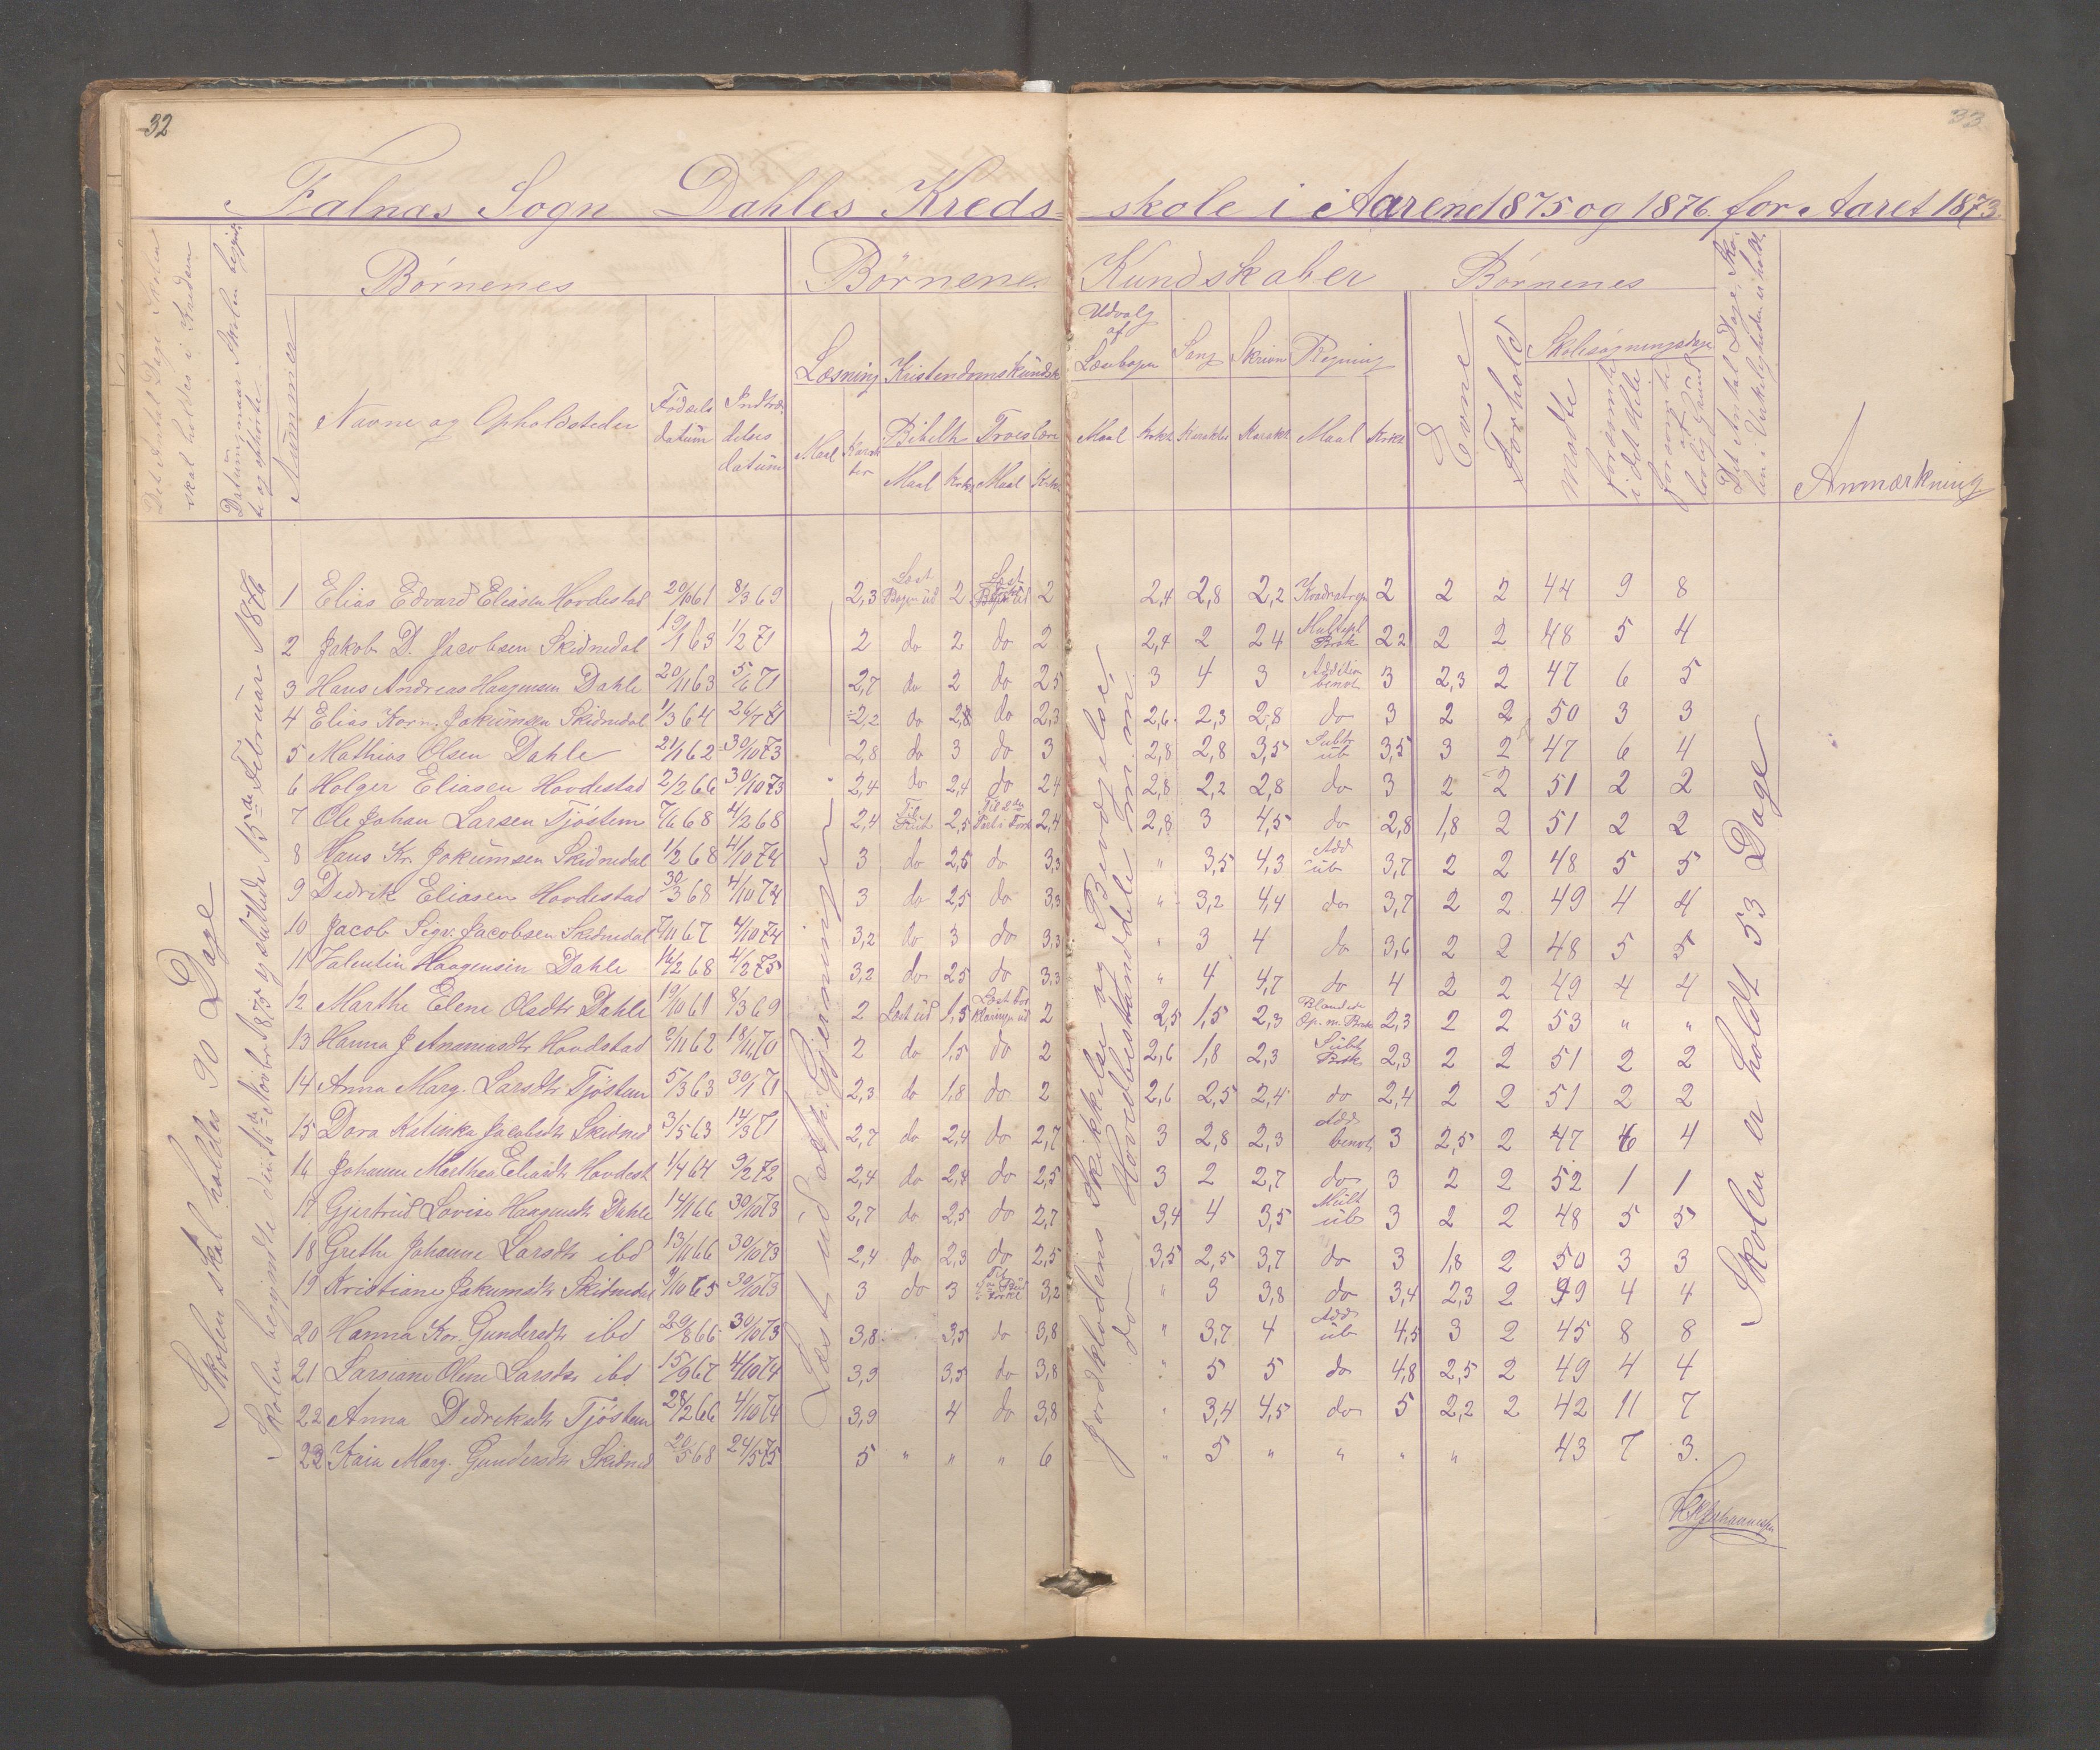 32
33
Falnæs Sogn Dahles Kreds- skole i Aarene 1875 og 1876 for Aaret 1873.
Det Antal Dage Skolen skal holdes i Kredsen
Datum naar Skolen begyndte og ophørte
Nummer
Børnenes
Navne og Opholdssteder
Fødsels datum
Indtrædelses datum
Børnenes Kundskaber
Læsning
Maal
Karakter
Kristendomskundsk
Bibelh
Maal Krkt
Troeslære
Maal Krkt
Udvalg af Læsebogen
Maal Krkt
Sang
Karakter
Skrivn
Karakt
Regning
Maal Krkt
Børnenes
Evne
Forhold
Skolesøgningsdage
Mødte
forsømte i det Hele
forsømte af lovlig Grund
Det Antal Dage Skolen i Virkeligheden er holdt
Anmærkning
Skolen skal holdes 90 Dage
Skolen begyndte den 16de Novbr 1875 og sluttede 15de Februar 1876
Læst ud
Jordklodens Skikkelse og Bevægelse,
do Hovedbestanddele m.m.
Skolen er holdt 53 Dage
1 Elias Edvard Eliasen Hovdestad 20/10 61 8/3 69 2,3 Læst Bogen ud 2 Læst ud 2 2,4 2,8 2,2 Kvadratregn 2 2 2 44 9 8
2 Jakob D. Jacobsen Skidnedal 19/1 63 1/2 71 2 do 2 do 2 2,4 2 2 4 Multipl Brøk 2 2 2 2 48 5 4
3 Hans Andreas Haagensen Dahle 20/11 63 5/6 71 2,7 do 2 do 2 5 3 4 3 Addition benævn 3 2,3 2 47 6 5
4 Elias Korn. Jokumsen Skidnedal 1/3 64 26/7 71 2,2 do 2,8 do 2,3 2,6 2,3 2,8 do 3 2 2 50 3 3
5 Mathias Olsen Dahle 21/1 62 30/10 73 2,8 do 3 do 3 2,8 2,8 3,5 Subtr ub 3,5 3 2 47 6 4
6 Holger Eliasen Hovdestad 2/2 66 30/10 73 2,4 do 2,4 do 2 4 2,8 2,2 2,8 do 3 2 2 51 2 2
7 Ole Johan Larsen Tjøstem 7/6 68 4/2 68 2,4 2,5 2,4 2,8 3 4,5 do 2,8 1,8 2 51 2 2
8 Hans Kr. Jokumsen Skidnedal 1/2 68 4/10 74 3 do 2,5 do 3,3 " 3,5 4,3 Add ub 3,7 2 2 48 5 5
9 Didrik Eliasen Hovdestad 30/3 68 4/10 74 3 do 2,5 do 3,3 " 3,2 4,4 do 3,7 2 2 49 4 4
10 Jacob Sigv. Jacobsen Skidnedal 7/11 67 4/10 74 3,2 do 3 do 3,3 " 3 4 do 3,6 2 2 48 5 5
11 Valentin Haagensen Dahle 16/2 68 4/2 75 3,2 do 2 5 do 3,3 " 4 4,7 do 4 2 2 49 4 4
12 Marthe Elene Olsdtr Dahle 19/10 61 8/3 69 2 Læst ud 1,5 Læst Forklaringen ud 2 2,5 1,5 2,3 Blandede Op. m. Brøk 2,3 2 2 53 " "
13 Hanna J Ananiasdtr Hovdstad 2/11 62 18/11 70 2 do 1,5 do 2 2,6 1,8 2,3 Subt Brøk 2,3 2 2 51 2 2
14 Anna Marg. Larsdtr Tjøstem 5/3 63 30/1 71 2,3 do 1,8 do 2 2,6 2,5 2,4 do 2,4 2 2 51 2 2
15 Dora Katinka Jacobsdtr Skidned 3/5 63 14/3 71 2,7 do 2,4 do 2,7 3 2,8 2,3 Add benævn 3 2,5 2 47 6 4
16 Johanne Marthea Eliasdtr Hovdest 1/4 64 9/2 72 2,4 do 2,4 do 2,5 3 2 2,7 do 3 2 2 52 1 1
17 Gjertrud Lovise Haagensdtr Dahle 14/1 66 30/10 73 2,7 do 2,5 do 2,7 3,4 4 3,5 Mult ub 3 2 2 48 5 5
18 Grethe Johanne Larsdtr ibd 13/11 66 30/10 73 2,4 do 2,3 do 2,5 3,5 2,5 3,7 do 3 1,8 2 50 3 3
19 Kristiane Jokumsdtr Skidnedal 9/10 65 30/10 73 3 do 3 3,2 " 3 3,8 do 3,4 2,3 2 49 4 4
20 Hanna Kor. Gundersdtr ibd 29/8 66 30/10 73 3,8 3,5 do 3,8 " 3,7 4 Add ub 4,5 3 2 45 8 8
21 Larsiane Oline Larsdtr ibd 15/9 67 4/10 74 3,9 3,5 do 3,8 " 5 5 do 4,8 2,5 2 49 4 4
22 Anna Didreksdtr Tjøstem 28/2 66 4/10 74 3,9 4 do 3,8 " 3,4 4,5 do 5 2,2 2 42 11 7
23 Kaia Marg. Gundersdtr Skidned 20/5 68 24/5 75 5 " " " 6 " 5 " " " " 43 7 3.